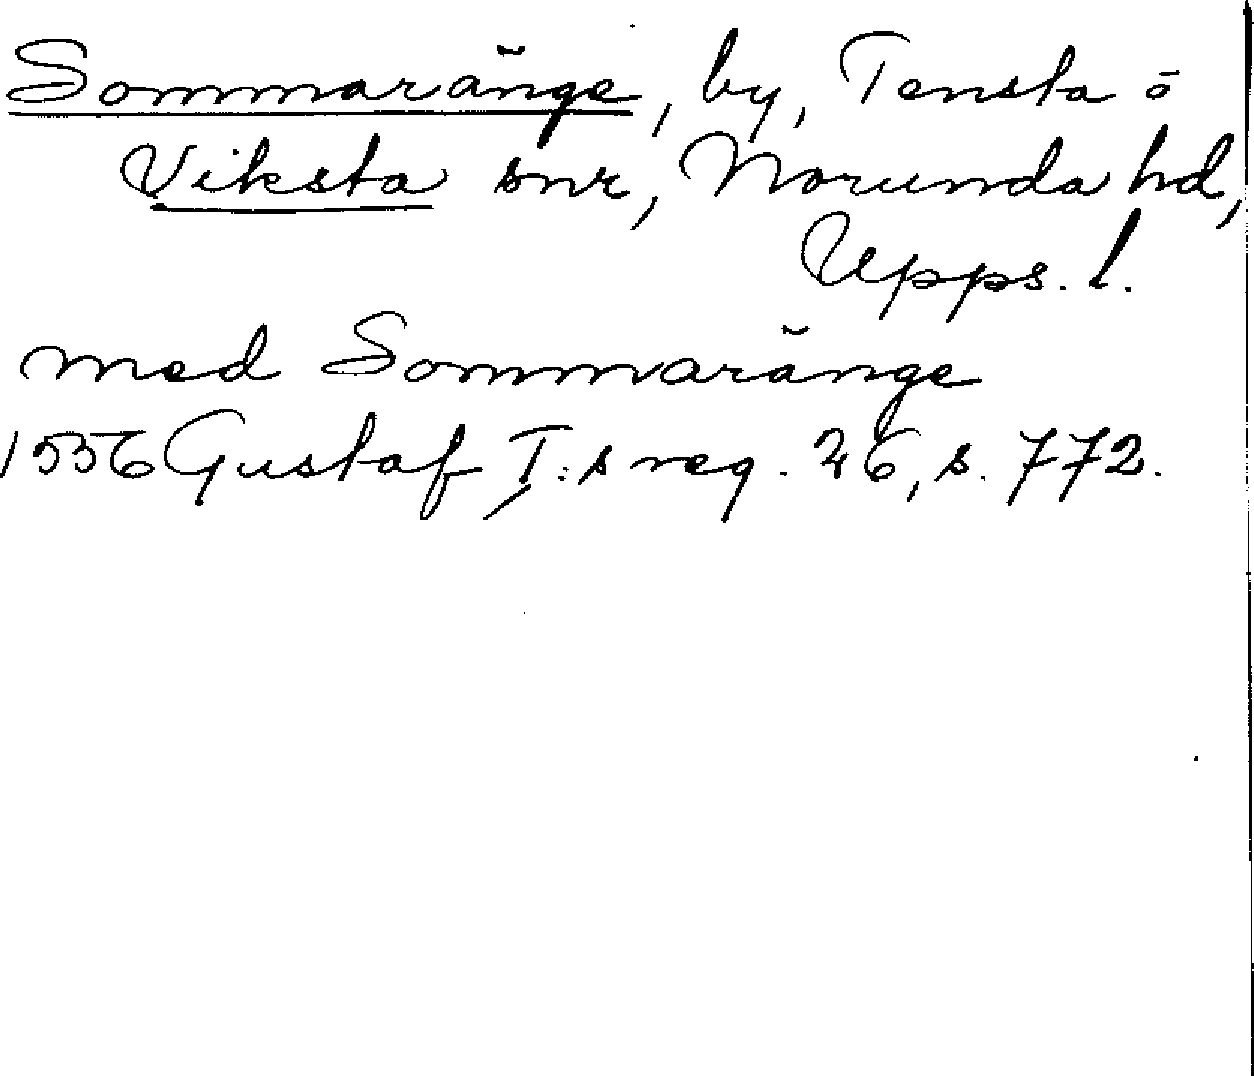 Sommaränge, by, Tensta o
Viksta snr, Norunda hd,
Upps. l.
med Sommaränge
1556 Gustaf I:s reg. 26, s. 772.